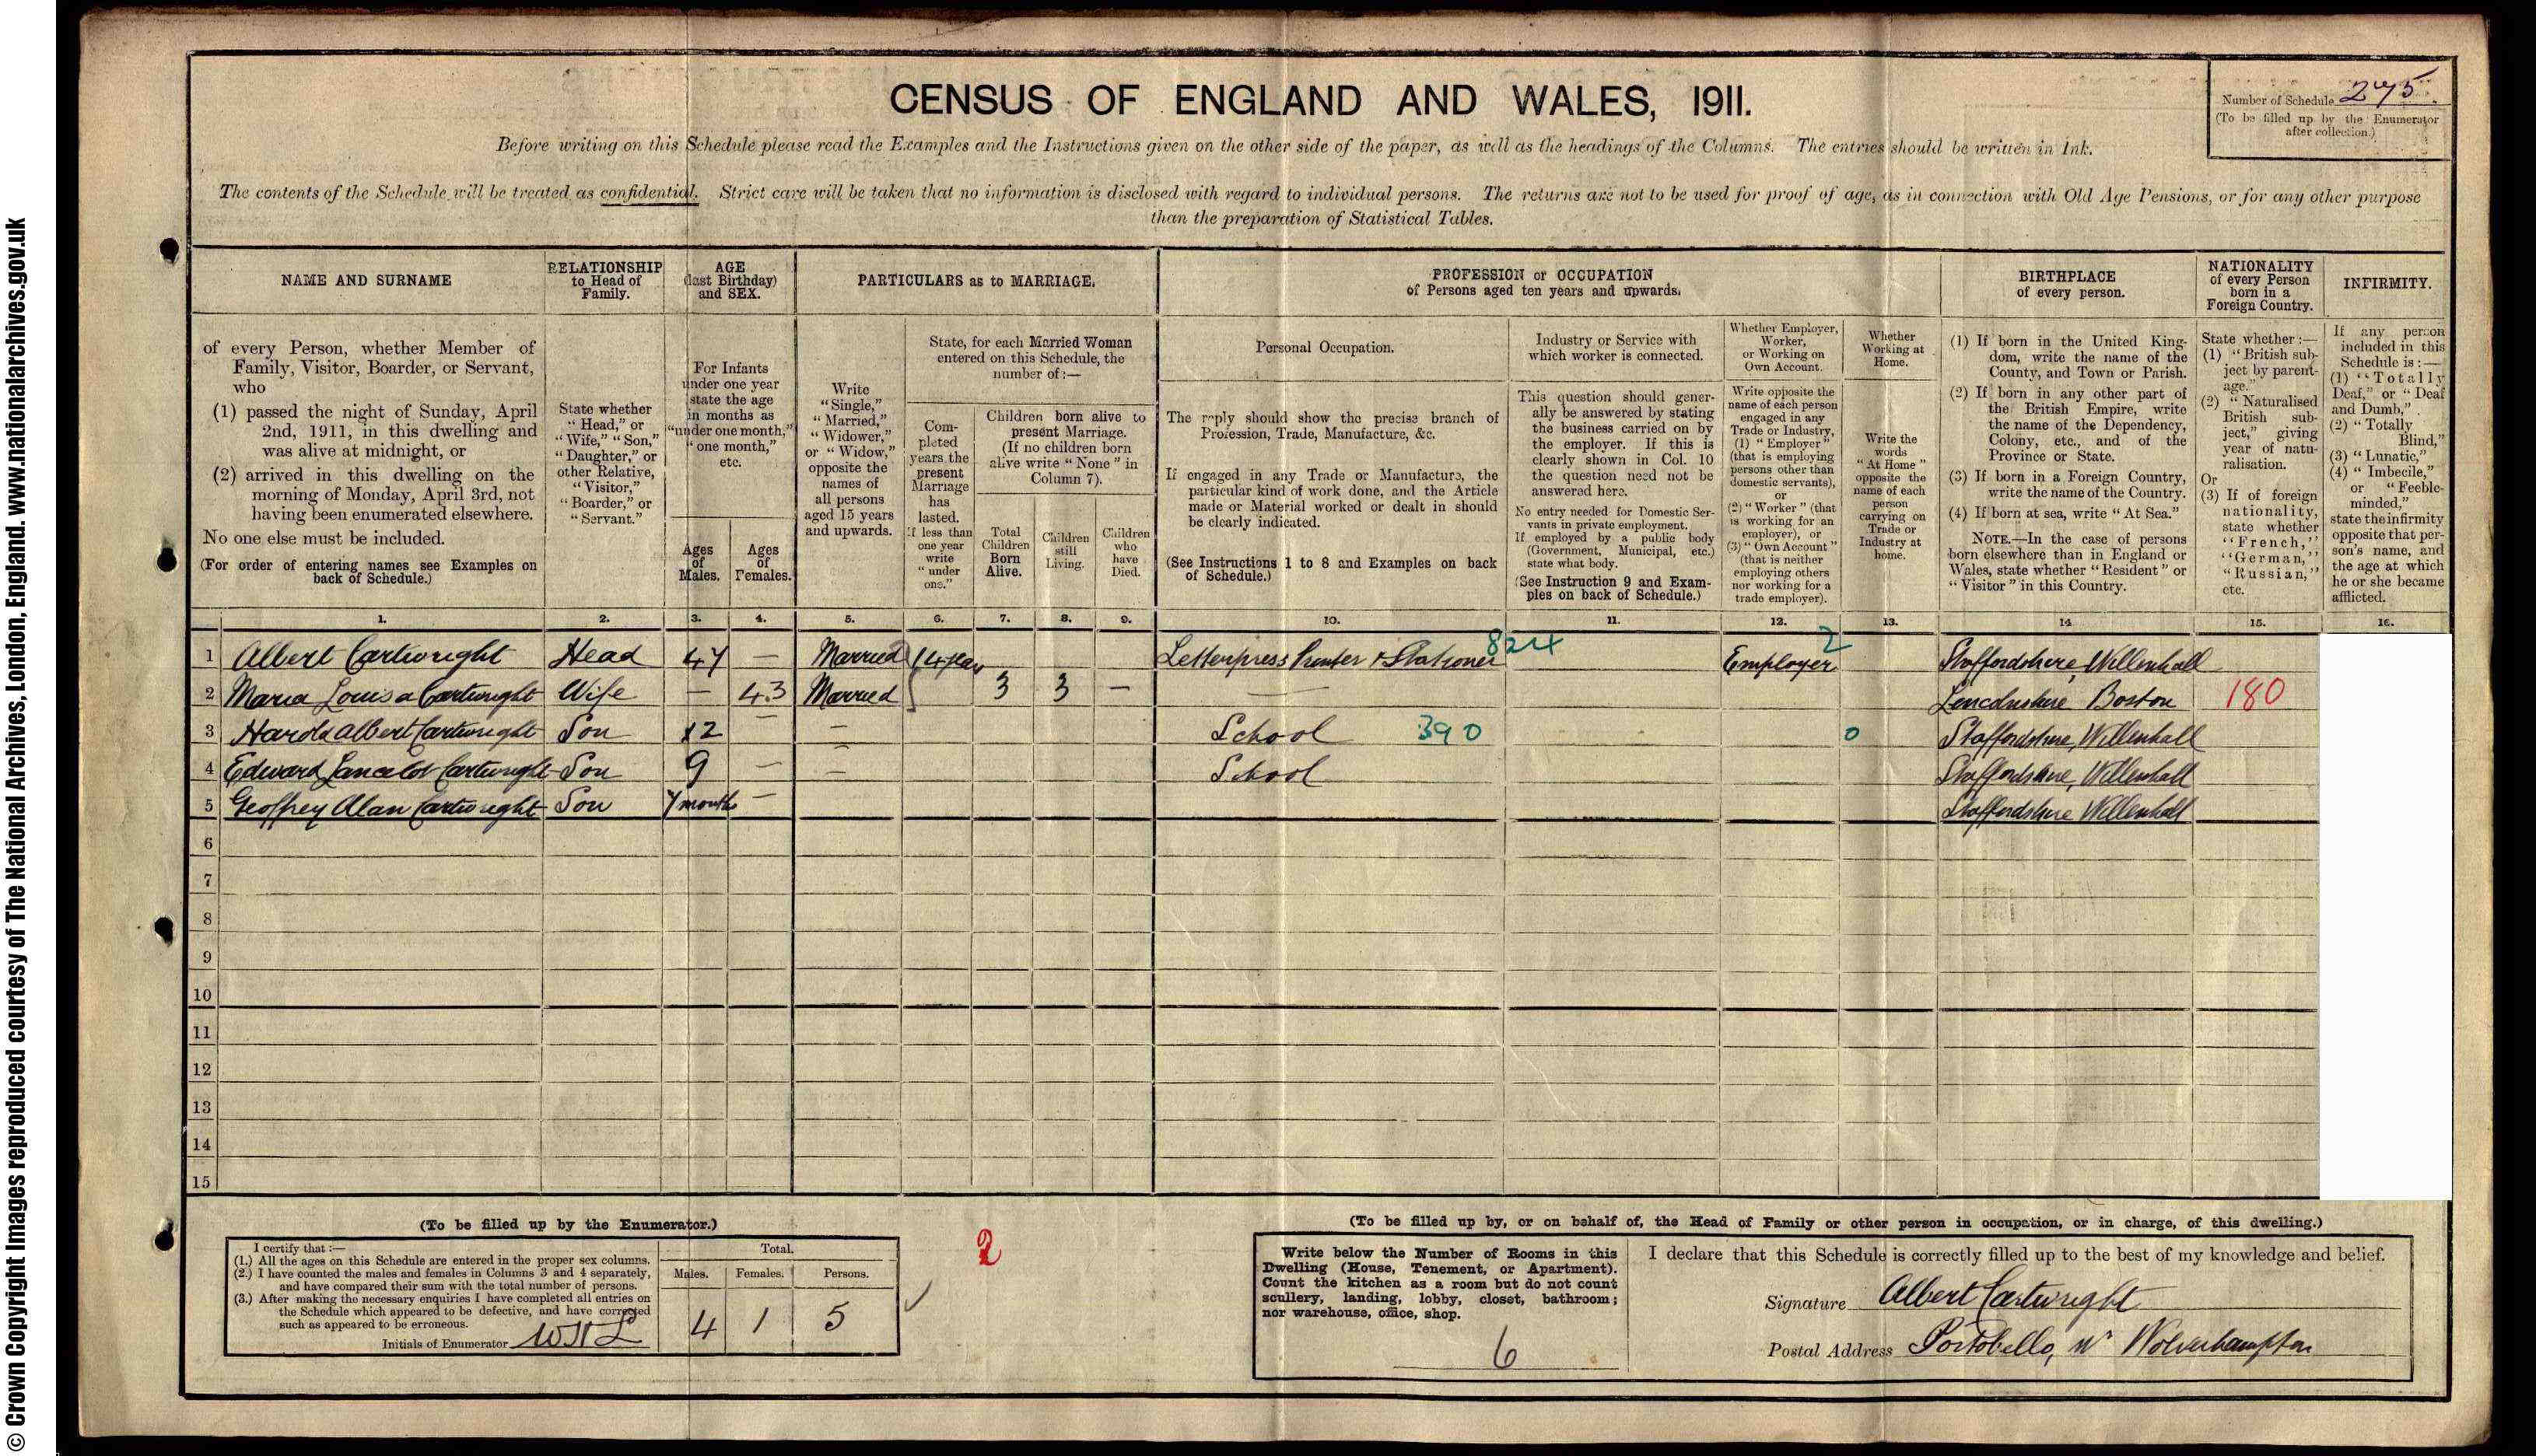 © Crown Copyright Images reproduced courtesy of The National Archives, London, England. www.nationalarchives.gov.uk
CENSUS OF ENGLAND AND WALES, 1911.
Number of Schedule 275.
(To be filled up by the Enumerator
after collection.)
Before writing on this Schedule please read the Examples and the Instructions given on the other side of the paper, as well as the headings of the Columns. The entries should be written in Ink.
The contents of the Schedule will be treated as confidential. Strict care will be taken that no information is disclosed with regard to individual persons. The returns are not to be used for proof of age, as in connection with Old Age Pensions, or for any other purpose
than the preparation of Statistical Tables.
NAME AND SURNAME
of every Person, whether Member of
Family, Visitor, Boarder, or Servant,
who
(1) passed the night of Sunday, April
2nd, 1911, in this dwelling and
was alive at midnight, or
(2) arrived in this dwelling on the
morning of Monday, April 3rd, not
having been enumerated elsewhere.
No one else must be included.
(For order of entering names see Examples on
back of Schedule.)
RELATIONSHIP
to Head of
Family.
State whether
"Head," or
"Wife," "Son,"
"Daughter," or
other Relative,
"Visitor,"
"Boarder," or
"Servant."
AGE
(last Birthday)
and SEX.
For Infants
under one year
state the age
in months as
"under one month,"
"one month,"
etc.
Ages
of
Males.
Ages
of
Females.
PARTICULARS as to MARRIAGE.
Write
"Single,"
"Married,"
"Widower,"
or "Widow,"
opposite the
names of
all persons
aged 15 years
and upwards.
State, for each Married Woman
entered on this Schedule, the
number of:—
Com-
pleted
years the
present
Marriage
has
lasted.
If less than
one year
write
"under
one."
Children born alive to
present Marriage.
(If no children born
alive write "None" in
Column 7).
Total
Children
Born
Alive.
Children
still
Living.
Children
who
have
Died.
PROFESSION or OCCUPATION
of Persons aged ten years and upwards.
Personal Occupation.
The reply should show the precise branch of
Profession, Trade, Manufacture, &c.
If engaged in any Trade or Manufacture, the
particular kind of work done, and the Article
made or Material worked or dealt in should
be clearly indicated.
(See Instructions 1 to 8 and Examples on back
of Schedule.)
Industry or Service with
which worker is connected.
This question should gener-
ally be answered by stating
the business carried on by
the employer. If this is
clearly shown in Col. 10
the question need not be
answered here.
No entry needed for Domestic Ser-
vants in private employment.
If employed by a public body
(Government, Municipal, etc.)
state what body.
(See Instruction 9 and Exam-
ples on back of Schedule.)
Whether Employer,
Worker,
or Working on
Own Account.
Write opposite the
name of each person
engaged in any
Trade or Industry,
(1) "Employer"
(that is employing
persons other than
domestic servants),
or
(2) "Worker" (that
is working for an
employer), or
(3) "Own Account"
(that is neither
employing others
nor working for a
trade employer).
Whether
Working at
Home.
Write the
words
"At Home"
opposite the
name of each
person
carrying on
Trade or
Industry at
home.
BIRTHPLACE
of every person.
(1) If born in the United King-
dom, write the name of the
County, and Town or Parish.
(2) If born in any other part of
the British Empire, write
the name of the Dependency,
Colony, etc., and of the
Province or State.
(3) If born in a Foreign Country,
write the name of the Country.
(4) If born at sea, write "At Sea."
NOTE.—In the case of persons
born elsewhere than in England or
Wales, state whether "Resident" or
"Visitor" in this Country.
NATIONALITY
of every Person
born in a
Foreign Country.
State whether:—
(1) "British sub-
ject by parent-
age."
(2) "Naturalised
British sub-
ject," giving
year of natu-
ralisation.
Or
(3) If of foreign
nationality,
state whether
"French,"
"German,"
"Russian,"
etc.
INFIRMITY.
If any person
included in this
Schedule is:—
(1) "Totally
Deaf," or "Deaf
and Dumb,"
(2) "Totally
Blind,"
(3) "Lunatic,"
(4) "Imbecile,"
or "Feeble-
minded,"
state the infirmity
opposite that per-
son's name, and
the age at which
he or she became
afflicted.
1. 2. 3. 4. 5. 6. 7. 8. 9. 10. 11. 12. 13. 14 15. 16.
1 Albert Cartwright Head 47 — Married 14 years Letterpress Printer & Stationer 824 Employer 2 Staffordshire, Willenhall
2 Maria Louisa Cartwright Wife — 43 Married 3 3 — — Lincolnshire Boston 180
3 Harold Albert Cartwright Son 12 — — School 390 0 Staffordshire, Willenhall
4 Edward Lancelot Cartwright Son 9 — — School Staffordshire, Willenhall
5 Geoffrey Alan Cartwright Son 7 months — Staffordshire Willenhall
6
7
8
9
10
11
12
13
14
15
(To be filled up by the Enumerator.)
I certify that:—
(1.) All the ages on this Schedule are entered in the proper sex columns.
(2.) I have counted the males and females in Columns 3 and 4 separately,
and have compared their sum with the total number of persons.
(3.) After making the necessary enquiries I have completed all entries on
the Schedule which appeared to be defective, and have corrected
such as appeared to be erroneous.
Initials of Enumerator
Total.
Males. Females. Persons.
4 1 5
2
(To be filled up by, or on behalf of, the Head of Family or other person in occupation, or in charge, of this dwelling.)
Write below the Number of Rooms in this
Dwelling (House, Tenement, or Apartment).
Count the kitchen as a room but do not count
scullery, landing, lobby, closet, bathroom;
nor warehouse, office, shop.
6
I declare that this Schedule is correctly filled up to the best of my knowledge and belief.
Signature Albert Cartwright
Postal Address Portobello, Nr Wolverhampton